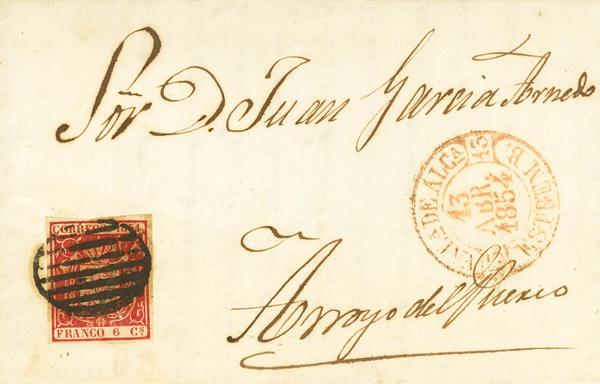 Sor. D. Juan Garcia Arnedo
VALA DE ALCA
13
13
ABR
1854
ESTREM B.
Arroyo del Puerco
CORREOS
FRANCO 6 Cs.